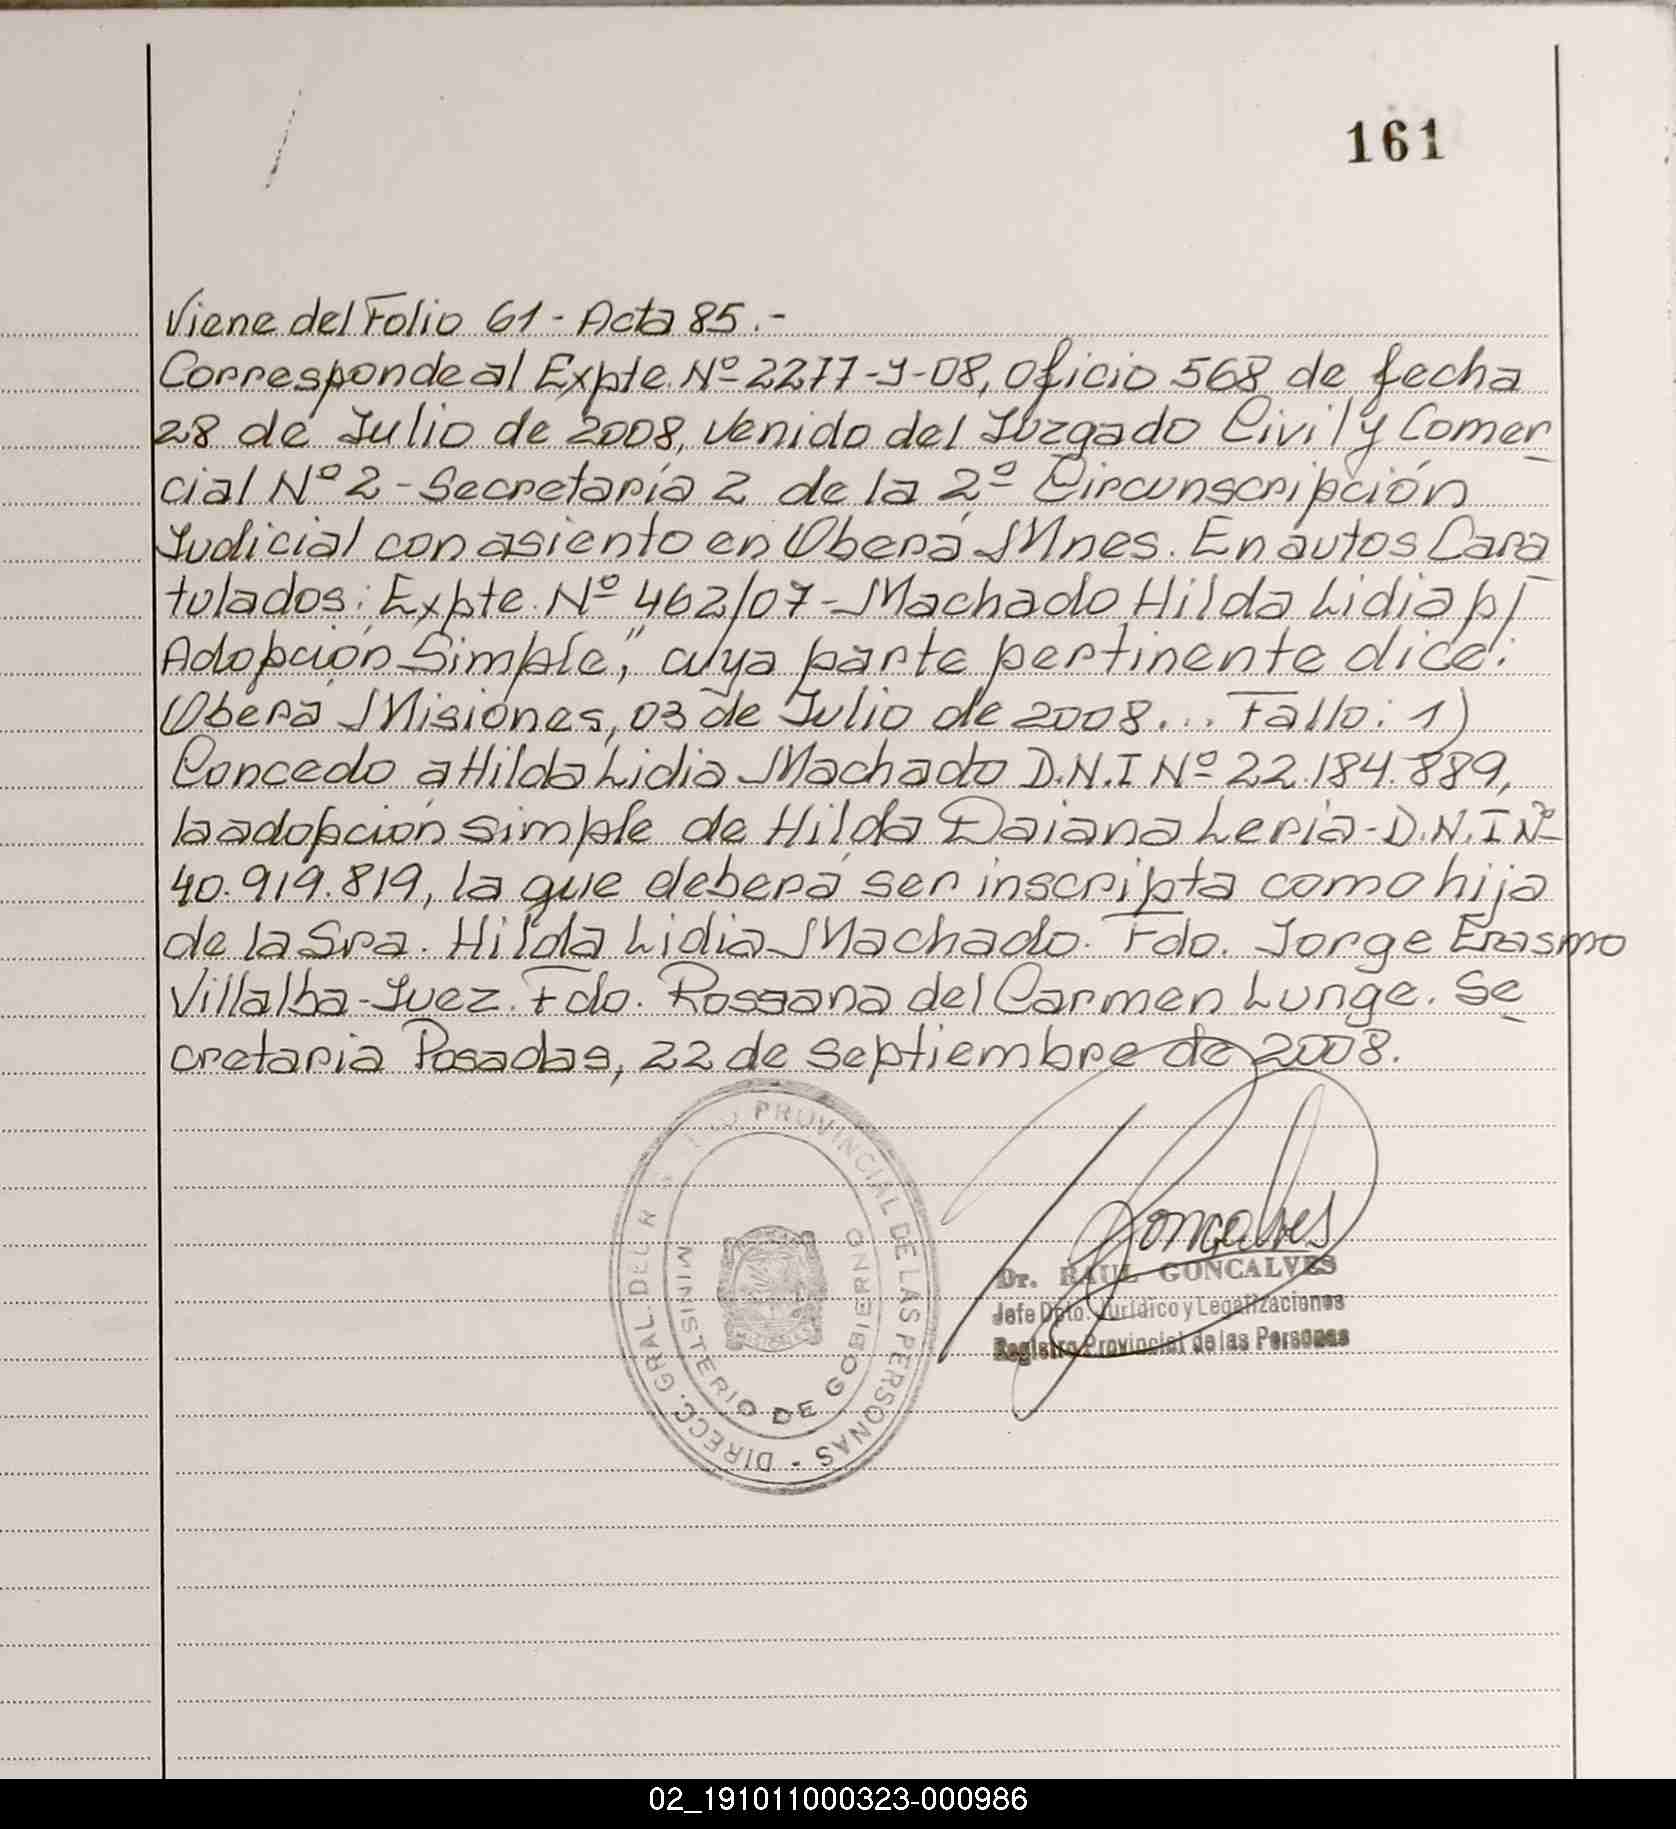 161
Viene del Folio 61 - Acta 85.-
Corresponde al Expte. Nº 2277-Y-08, oficio 568 de fecha
28 de Julio de 2008, venido del Juzgado Civil y Comer
cial Nº 2 - Secretaría 2 de la 2º Circunscripción
Judicial con asiento en Oberá Mnes. En autos Cara
tulados: Expte. Nº 462/07 - Machado Hilda Lidia p/
Adopción Simple", cuya parte pertinente dice:
Oberá Misiones, 03 de Julio de 2008... Fallo: 1)
Concedo a Hilda Lidia Machado D.N.I Nº 22.184.889,
la adopción simple de Hilda Daiana Leria - D.N.I Nº
40.919.819, la que deberá ser inscripta como hija
de la Sra. Hilda Lidia Machado. Fdo. Jorge Erasmo
Villalba - Juez. Fdo. Rossana del Carmen Lunge. Se
cretaria Posadas, 22 de septiembre de 2008.
DIRECC. GRAL. DEL PROVINCIAL DE LAS PERSONAS -
MINISTERIO DE GOBIERNO
Goncalves
Dr. RAUL GONCALVES
Jefe Dpto. Jurídico y Legalizaciones
Registro Provincial de las Personas
02_191011000323-000986